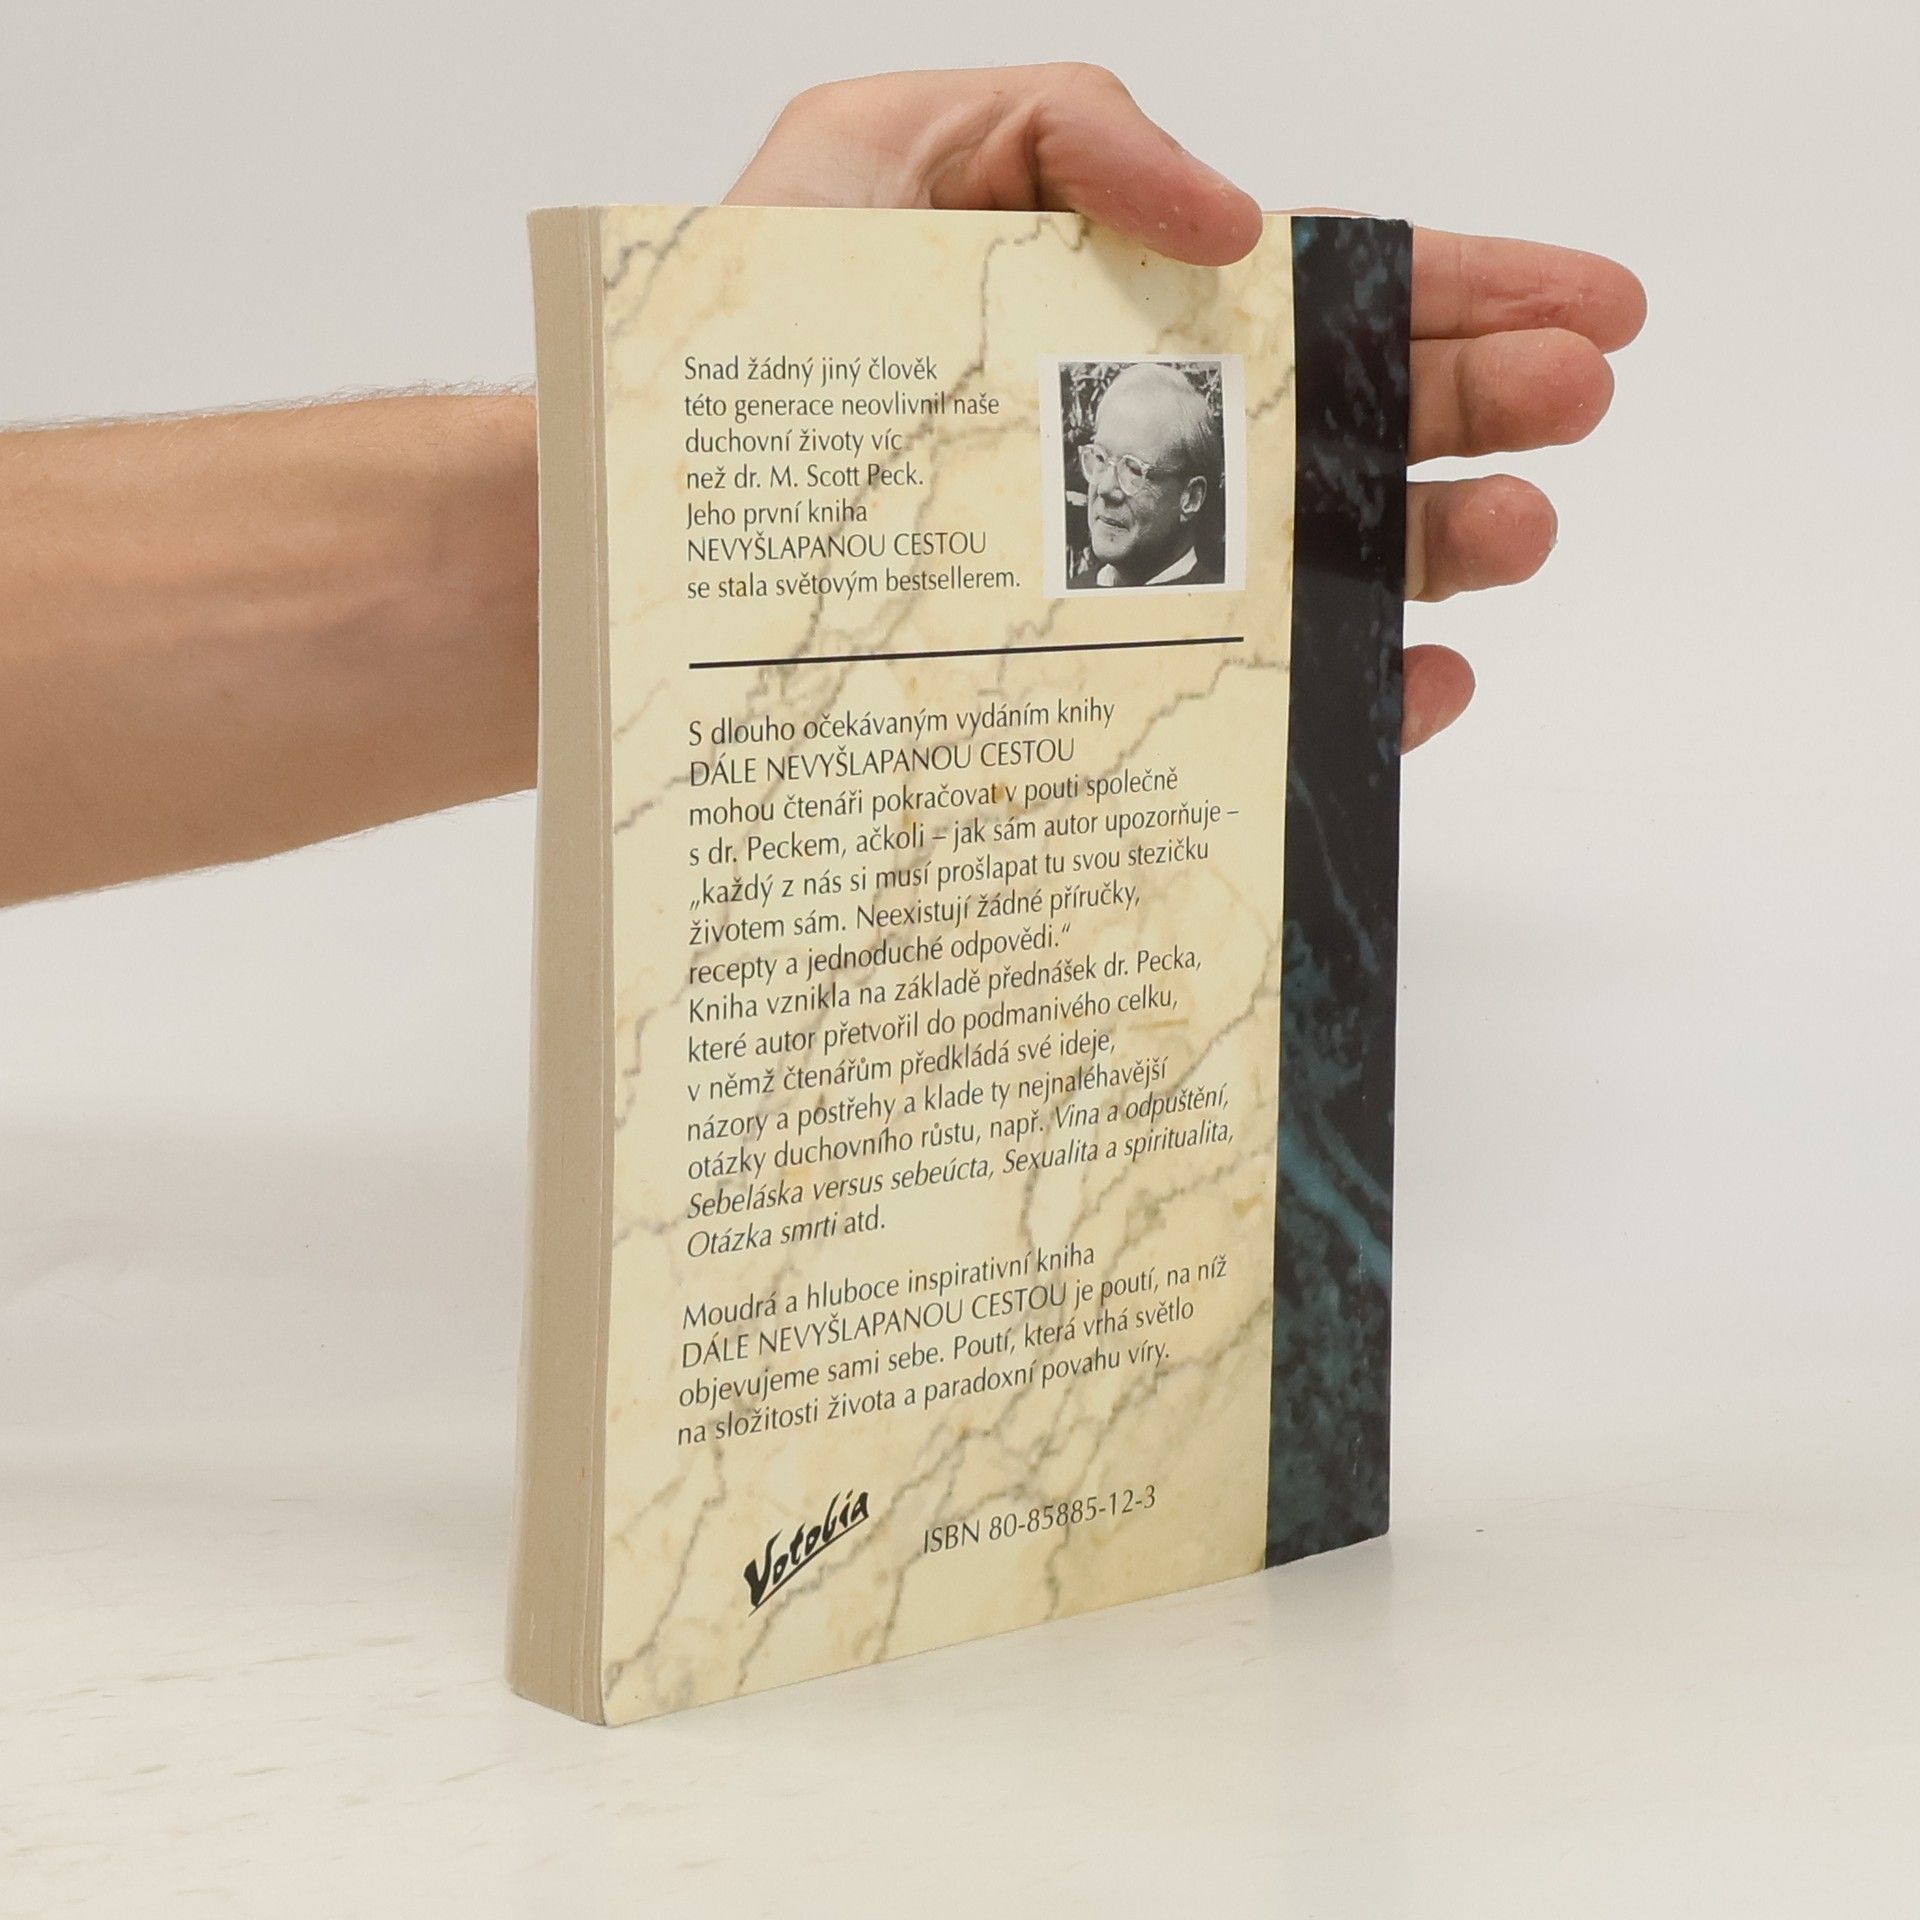 Snad žádný jiný člověk
této generace neovlivnil naše
duchovní životy víc
než dr. M. Scott Peck.
Jeho první kniha
NEVYŠLAPANOU CESTOU
se stala světovým bestsellerem.
S dlouho očekávaným vydáním knihy
DÁLE NEVYŠLAPANOU CESTOU
mohou čtenáři pokračovat v pouti společně
s dr. Peckem, ačkoli – jak sám autor upozorňuje –
„každý z nás si musí prošlapat tu svou stezičku
životem sám. Neexistují žádné příručky,
recepty a jednoduché odpovědi.“
Kniha vznikla na základě přednášek dr. Pecka,
které autor přetvořil do podmanivého celku,
v němž čtenářům předkládá své ideje,
názory a postřehy a klade ty nejnaléhavější
otázky duchovního růstu, např. Vina a odpuštění,
Sebeláska versus sebeúcta, Sexualita a spiritualita,
Otázka smrti atd.
Moudrá a hluboce inspirativní kniha
DÁLE NEVYŠLAPANOU CESTOU je poutí, na níž
objevujeme sami sebe. Poutí, která vrhá světlo
na složitosti života a paradoxní povahu víry.
Votobia
ISBN 80-85885-12-3